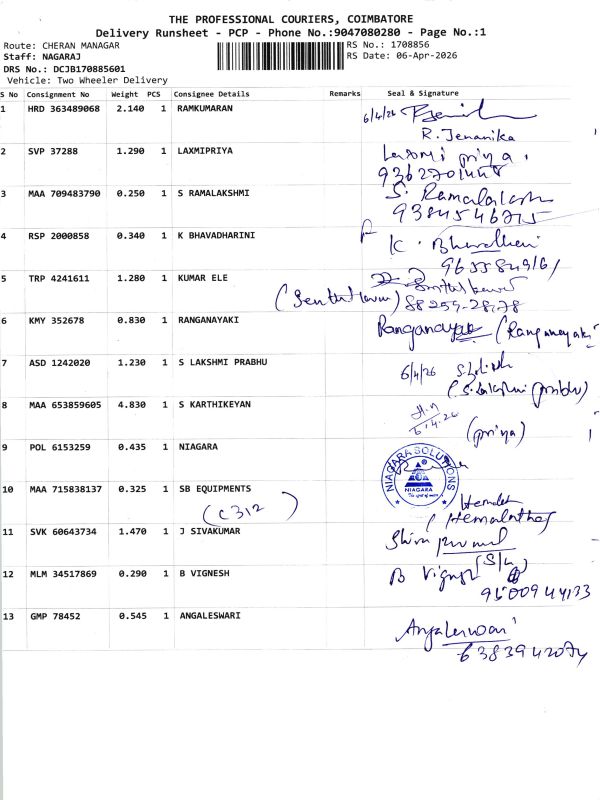 THE PROFESSIONAL COURIERS, COIMBATORE
Delivery Runsheet - PCP - Phone No.:9047080280 - Page No.:1
Route: CHERAN MANAGAR
RS No.: 1708856
Staff: NAGARAJ
RS Date: 06-Apr-2026
DRS No.: DCJB170885601
Vehicle: Two Wheeler Delivery
S No Consignment No Weight PCS Consignee Details Remarks Seal & Signature
1 HRD 363489068 2.140 1 RAMKUMARAN 6/4/26
R. Jenanika
2 SVP 37288 1.290 1 LAXMIPRIYA Laxmi priya.
3 MAA 709483790 0.250 1 S RAMALAKSHMI S. Ramalakshmi
9384546715
4 RSP 2000858 0.340 1 K BHAVADHARINI K. Bhavadharini
5 TRP 4241611 1.280 1 KUMAR ELE
(Senthil kumar) 88259-28778
6 KMY 352678 0.830 1 RANGANAYAKI Ranganayaki (Ranganayaki)
7 ASD 1242020 1.230 1 S LAKSHMI PRABHU 6/4/26
(S. Lakshmi prabhu)
8 MAA 653859605 4.830 1 S KARTHIKEYAN 6.4.26
(priya)
9 POL 6153259 0.435 1 NIAGARA
NIAGARA SOLUTIONS
NIAGARA
10 MAA 715838137 0.325 1 SB EQUIPMENTS
(C312) (Hemalatha)
11 SVK 60643734 1.470 1 J SIVAKUMAR
12 MLM 34517869 0.290 1 B VIGNESH B Vignesh
9500944133
13 GMP 78452 0.545 1 ANGALESWARI Angaleswari
6383942074